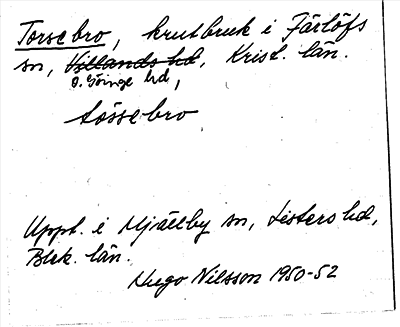 Torsebro, krutbruk i Färlöfs
sn, Villands hd, Krist. län.
Ö. Göinge hd,
tåssebro
Uppt. i Mjällby sn, Listers hd,
Blek. län.
Hugo Nilsson 1950-52